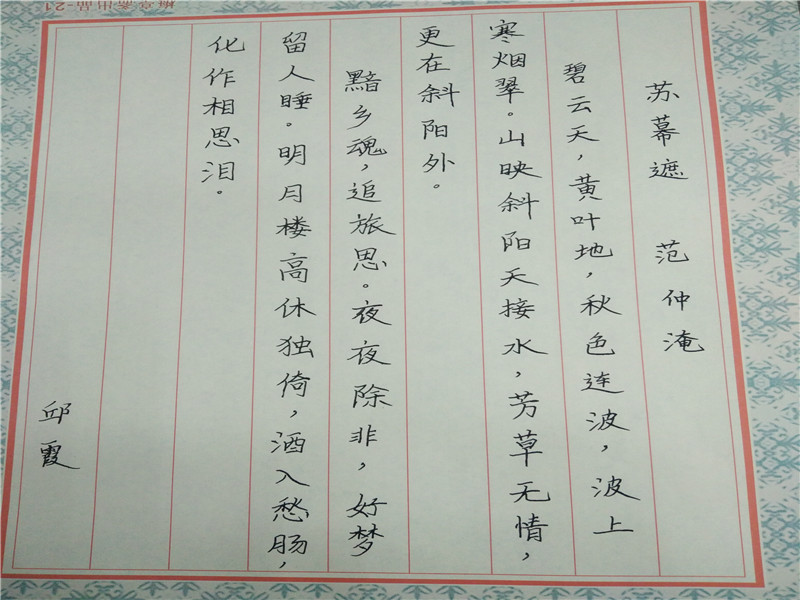 苏幕遮 范仲淹
碧云天，黄叶地，秋色连波，波上
寒烟翠。山映斜阳天接水，芳草无情，
更在斜阳外。
黯乡魂，追旅思。夜夜除非，好梦
留人睡。明月楼高休独倚，酒入愁肠，
化作相思泪。
邱霞